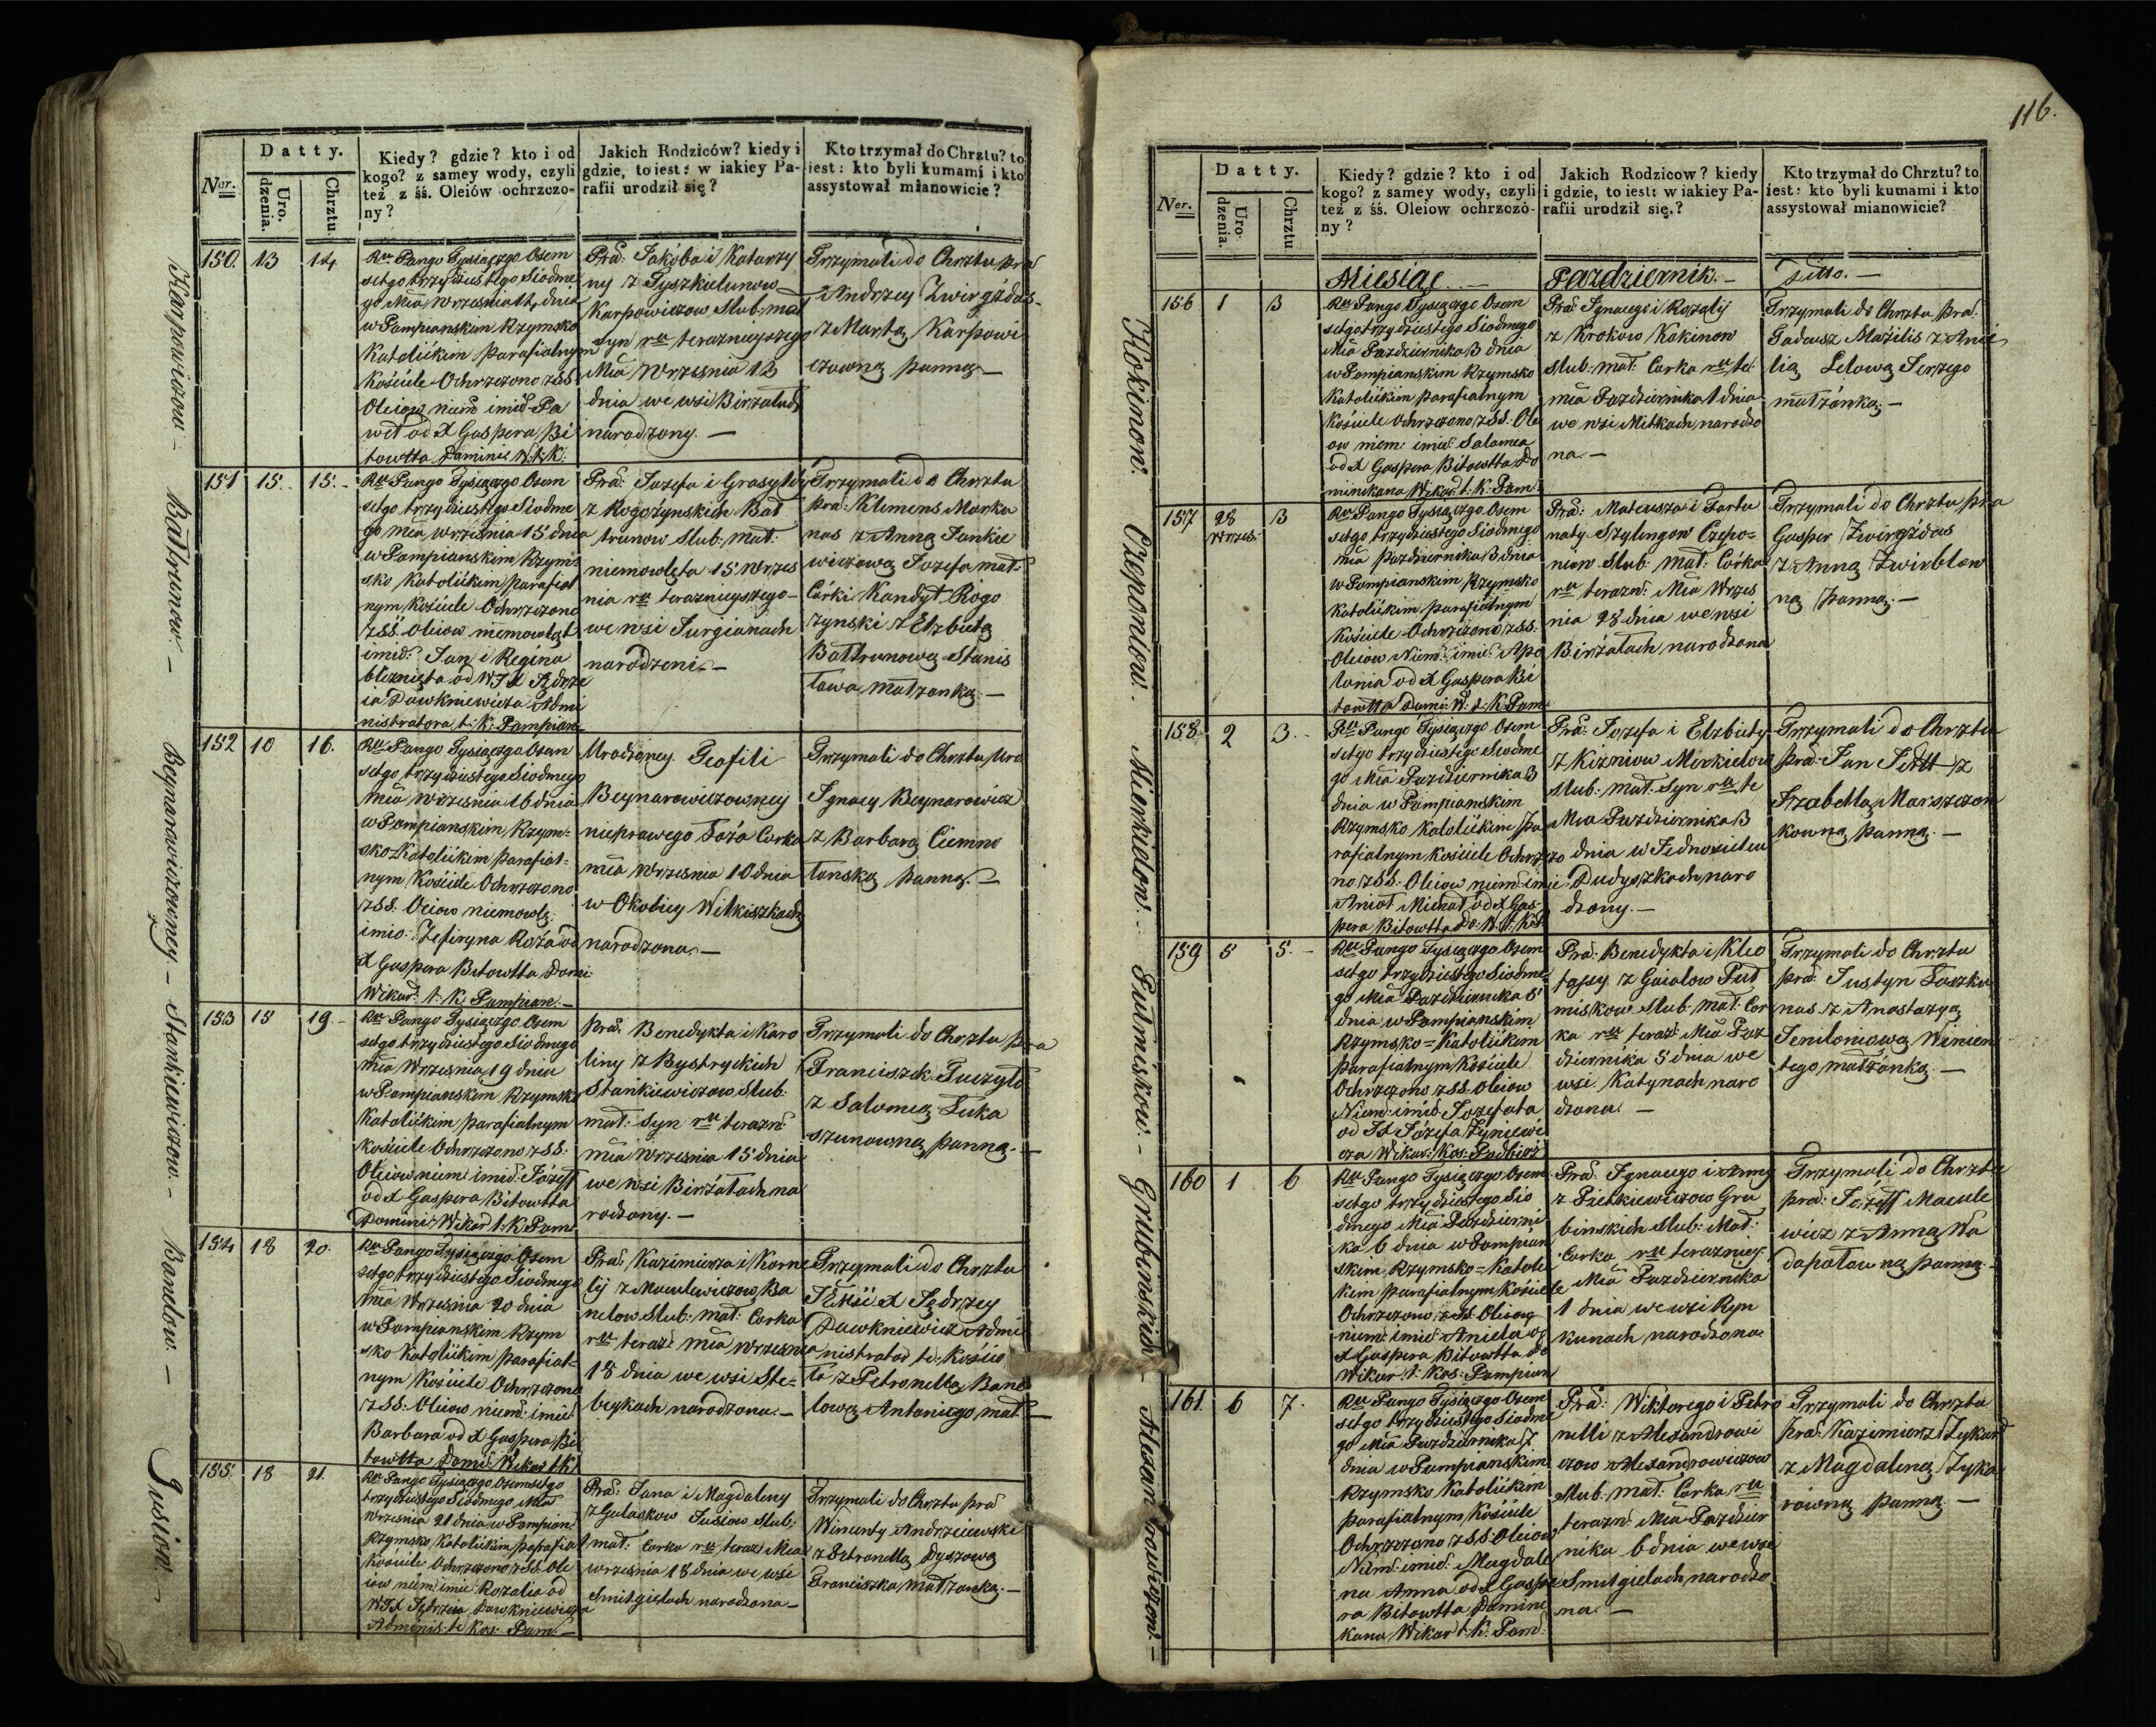 Datty.
Ner.
Uro.
dzenia.
Chrztu
Kiedy? gdzie? kto i od
kogo? z samey wody, czyli
też z śś. Oleiów ochrzczo-
ny?
Jakich Rodziców? kiedy i
gdzie, to iest: w iakiey Pa-
rafii urodził się?
Kto trzymał do Chrztu? to
iest: kto byli kumami i kto
assystował mianowicie?
Karpowiczow. —
150. 13 14
Ru Pango Tysiączgo Osem
setgo trzydziestego Siodme
go Mca Wrzesnia 14 dnia
w Pompianskim Rzymsko
Katolickim Parafialnym
Kościele Ochrzczono z SS
Oleiow niem imie Pa
weł od X Gaspera Bi
towtta Domini W. t. K.
Prac: Jakóba i Katarzy
ny z Tyszkielunow
Karpowiczow Slub: mał
syn ru teraznieyszego
Mca Wrzesnia 13
dnia we wsi Birzałach
narodzony. —
Trzymali do Chrztu prac
Andrzey Zwirgżdas
z Martą Karpowi
czowną panną —
Battrunow —
151 15. 15. -
Ru Pango Tysiączgo Osem
setgo trzydziestego Siodme
go mca wrzesnia 15 dnia
w Pompianskim Rzym-
sko Katolickim parafial
nym Kościele Ochrzczono
z SS. Oleiow niemowląt
imied: Jan i Regina
bliznięta od WJX Jędrze
ia Dawkniewicza Admi
nistratora t: K: Pompian
Prac: Jozefa i Grasyldy
z Rogożynskich Bat
trunow Slub: Mał:
niemowlęta 15 Wrzes
nia ru teraznieyszego —
we wsi Jurgianach
narodzeni. —
Trzymali do Chrztu
prac: Klemens Marka
nas z Anną Jankie
wiczową Jozefa mał-
Córki Kandyt Rogo
zynski z Elzbietą
Battrunową Stanis
ława małzonką. —
Beynarowiczowney —
152 10 16.
Ru Pango Tysiączgo Osem
setgo trzydziestego Siodmego
Mca Wrzesnia 16 dnia
w Pompianskim Rzym-
sko Katolickim parafial-
nym Kościele Ochrzczono
z SS. Oleiow niemowlę
imio: Zefiryna Roża od
X Gaspera Bitowtta Domi
Wikar: t: K. Pompian. —
Urodzoney Teofili
Beynarowiczowney
nieprawego Łoża Corka
mca Wrzesnia 10 dnia
w Okolicy Witkiszkach
narodzona. —
Trzymali do Chrztu Uro
Jgnacy Beynarowicz
z Barbarą Ciemno
łonską panną. —
Stankiewiczow. -
153 15 19 -
Ru Pango Tysiączgo Osem
setgo trzydziestego Siodmego
Mca Wrzesnia 19 dnia
w Pompianskim Rzymsko
Katolickim parafialnym
kościele Ochrzczono z SS:
Oleiow niem imied: Józef
od X Gaspera Bitowtta
Domini: Wikar t: K: Pom
Prac. Benedykta i Karo
liny z Bystryckich
Stankiewiczow Slub:
mał: Syn ru terazn
mca Wrzesnia 15 dnia
we wsi Birżałach na
rodzony. —
Trzymali do Chrztu pra
Franciszek Puczyło
z Salomeą Łuka
szunowną panną. —
Banelow. —
154 18 20.
Ru Pango Tysiączgo Osem
setgo trzydziestego Siodmego
Mca Wrzesnia 20 dnia
w Pompianskim Rzym
sko Katolickim parafial-
nym Kosciele Ochrzczono
z SS: Oleiow niem: imie
Barbara od X Gaspera Bi
towtta Domi: Wikar t K
Prac: Kazimierza i Korne
lij z Maculewiczow Ba
nelow Slub: mał: Corka
ru teraz mca wrzesnia
18 dnia we wsi Ste-
beykach narodzona. —
Trzymali do Chrztu
X Jędrzey
Dawkniewicz Admi
nistrator te: Kościo
ła z Petronellą Bane
lową Antoniego mał —
Jusiow. —
155 18 21.
Ru Pango Tysiączgo Osemsetgo
trzydziestego Siodmego Mca
Wrzesnia 21 dnia w Pompian:
Rzymsko Katolickim parafial
Kosciele Ochrzczono z SS. Ole
iow niem imie Rozalia od
WJX Jędrzeia Dawkniewicza
Adminis: te Kos: Pom. —
Prac: Jana i Magdaleny
z Gulaskow Jusiow Slub:
mał: Corka ru teraz Mca
wrzesnia 18 dnia we wsi
Smilgielach narodzona —
Trzymali do Chrztu prac
Wincenty Andrziewski
z Petronellą Dyszową
Franciszka małzonką. —
116.
Datty.
Ner.
Uro-
dzenia.
Chrztu
Kiedy? gdzie? kto i od
kogo? z samey wody, czyli
też z śś. Oleiow ochrzczo-
ny?
Jakich Rodzicow? kiedy
i gdzie, to iest: w iakiey Pa-
rafii urodził się.?
Kto trzymał do Chrztu? to
iest: kto byli kumami i kto
assystował mianowicie?
Miesiąc — Pazdziernik. — Ditto. —
Kokinow.
156 1 3
Ru Pango Tysiączgo Osem
setgo trzydziestego Siodmego
Mca Pazdziernika 3 dnia
w Pompianskim Rzymsko
Katolickim parafialnym
Kościele Ochrzczono z SS. Ole
ow niem: imie: Salomea
od X Gaspera Bitowtta Do
minikana Wikar: t: K: Pom
Prac: Jgnacego i Rozalij
z Krokow Kokinow
Slub: mał: Corka ru te:
mca Pazdziernika 1 dnia
we wsi Mitkach narodzo
na. —
Trzymali do Chrztu prac:
Tadeusz Mażilis z Anie
lią Lelową Jerzego
małżonką. —
Czeponiow.
157 28 Wrzes. 3
Ru Pango Tysiączgo Osem
setgo trzydziestego Siodmego
mca pazdziernika 3 dnia
w Pompianskim Rzymsko
Katolickim parafialnym
Kościele Ochrzczono z SS:
Oleiow Niem: imie: Apo
lonia od X Gaspera Bi
towtta Domi: W: t: K: Pom
Prac: Mateusza i Fortu
naty Szylingow Czepo-
niow Slub: Mał: Córka
ru terazn: Mca Wrzes
nia 28 dnia we wsi
Birżałach narodzona
Trzymali do Chrztu pra
Gasper Zwirgżdas
z Anną Zwirblow
ną panną. —
Mierkielow. —
158 2 3. -
Ru Pango Tysiączgo Osem
setgo trzydziestego Siodme
go Mca Pazdziernika 3
dnia w Pompianskim
Rzymsko Katolickim Pa
rafialnym kościele Ochrzczo
no z SS. Oleiow niem: imie
Anioł Michał od X Gas-
pera Bitowtta Do: W. t. K.
Prac: Jozefa i Elzbiety
z Kiznow Mirkielow
Slub: mał: Syn ru te
Mca Pazdziernika 3
dnia w Jednosielcu
Dudyszkach naro
dzony. —
Trzymali do Chrztu
prac: Jan z
Jzabellą Marszczon
kowną panną. —
Putmiskow. -
159 5 5. -
Ru Pango Tysiączgo Osem
setgo trzydziestego Siodme
go Mca Pazdziernika 5
dnia w Pompianskim
Rzymsko-Katolickim
parafialnym Kościele
Ochrzczono z SS. Oleiow
Niem: imie: Jozefata
od JX Józefa Zyniewi
cza Wikar: Kos: Podbirż
Prac: Benedykta i Kleo
fassy z Gaialow Put
miskow Slub: Mał: Cor
ka ru teraz Mca Paz
dziernika 5 dnia we
wsi Katynach naro
dzona. —
Trzymali do Chrztu
prac: Justyn Łaszka
nas z Anastazyą
Jeniloniową Wincen
tego małżonką. —
Grubinskich
160 1 6
Ru Pango Tysiączgo Osem
setgo trzydziestego Sio
dmego Mca Pazdzierni
ka 6 dnia w Pompian
skim Rzymsko-Katoli
kiem parafialnym kościele
Ochrzczono z SS. Oleiow
niem: imie: Aniela od
X Gaspera Bitowtta Do
Wikar: t: Kos: Pompian
Prac: Jgnacego i Anny
z Pietkiewiczow Gru
binskich Slub: Mał:
Corka ru teraznieg
Mca Pazdziernika
1 dnia we wsi Ryn
kunach narodzona
Trzymali do Chrztu
prac: Józeff Macule
wicz z Anną Wa
dapałowną panną. -
Alexandrowiczow. —
161. 6 7.
Ru Pango Tysiączgo Osem
setgo trzydziestego Siodme
go Mca Pazdziernika 7
dnia w Pompianskim
Rzymsko Katolickim
parafialnym Kościele
Ochrzczono z SS Oleiow
Niem: imie: Magdale
na Anna od X Gaspe
ra Bitowtta Domini
kana Wikar t: K: Pom:
Prac: Wiktorego i Petro
nelli z Alexandrowi
czow Alexandrowiczow
Slub: mał: Corka ru
terazn: Mca Pazdzier
nika 6 dnia we wsi
Smilgielach narodzo
na. —
Trzymali do Chrztu
Prac: Kazimierz Zykar
z Magdaleną Zyka
równą panną —